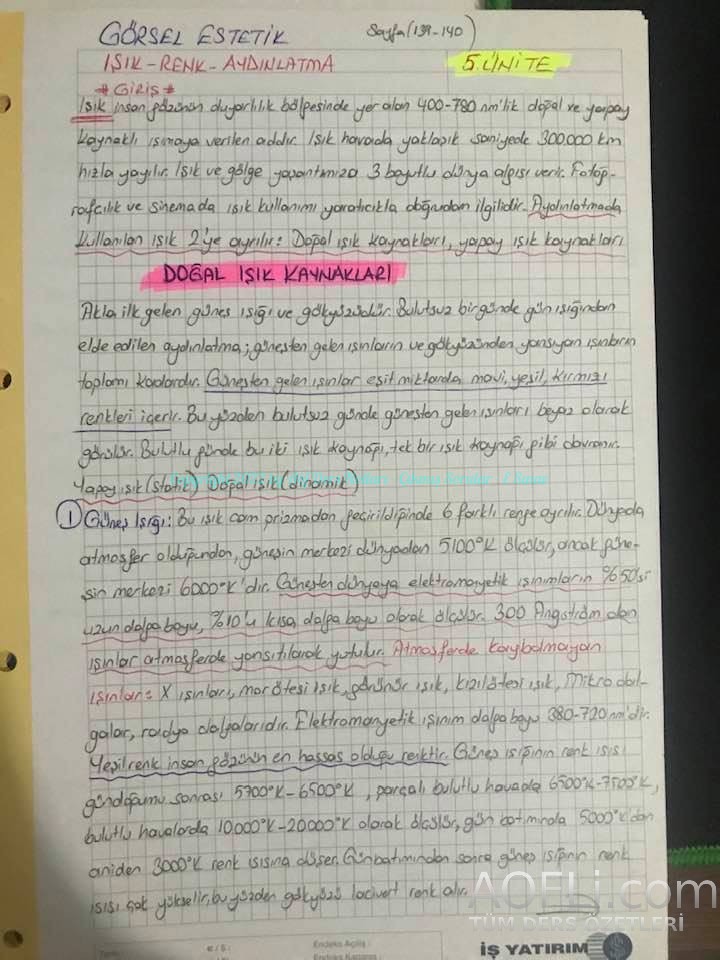 GÖRSEL ESTETİK Sayfa (139-140)
IŞIK-RENK-AYDINLATMA 5.ÜNİTE
* GİRİŞ *
Işık insan gözünün duyarlılık bölgesinde yer alan 400-780 nm'lik doğal ve yapay
kaynaklı ışımaya verilen addır. Işık havada yaklaşık saniyede 300.000 km
hızla yayılır. Işık ve gölge yaşantımıza 3 boyutlu dünya algısı verir. Fotoğ-
rafçılık ve sinemada ışık kullanımı yaratıcıkla doğrudan ilgilidir. Aydınlatmada
kullanılan ışık 2'ye ayrılır: Doğal ışık kaynakları, yapay ışık kaynakları
DOĞAL IŞIK KAYNAKLARI
Akla ilk gelen güneş ışığı ve gökyüzüdür. Bulutsuz bir günde gün ışığından
elde edilen aydınlatma; güneşten gelen ışınların ve gökyüzünden yansıyan ışınların
toplamı kadardır. Güneşten gelen ışınlar eşit miktarda mavi, yeşil, kırmızı
renkleri içerir. Bu yüzden bulutsuz günde güneşten gelen ışınları beyaz olarak
görülür. Bulutlu günde bu iki ışık kaynağı, tek bir ışık kaynağı gibi davranır.
Yapay ışık (statik) Doğal ışık (dinamik)
1 Güneş Işığı: Bu ışık cam prizmadan geçirildiğinde 6 farklı renge ayrılır. Dünyada
atmosfer olduğundan, güneşin merkezi dünyadan 5100°K ölçülür, ancak güne-
şin merkezi 6000°K'dir. Güneşten dünyaya elektromanyetik ışınımların %50'si
uzun dalga boyu, %10'u kısa dalga boyu olarak ölçülür. 300 Angström dan
ışınlar atmosferde yansıtılarak yutulur. Atmosferde kaybolmayan
ışınlar: X ışınları, mor ötesi ışık, görünür ışık, kızıl ötesi ışık, mikro dal-
galar, radyo dalgalarıdır. Elektromanyetik ışınım dalga boyu 380-720 nm'dir.
Yeşil renk insan gözünün en hassas olduğu renktir. Güneş ışığının renk ısısı
gündoğumu sonrası 5700°K-6500°K, parçalı bulutlu havada 6500°K-7500°K,
bulutlu havalarda 10.000°K-20.000°K olarak ölçülür, gün batımında 5000°K'dan
aniden 3000°K renk ısısına düşer. Günbatımından sonra güneş ışığının renk
ısısı çok yükselir, bu yüzden gökyüzü lacivert renk alır.
AOFLi.com
TÜM DERS ÖZETLERİ
Endeks Açılış :
Endeks Kapanış :
İŞ YATIRIM